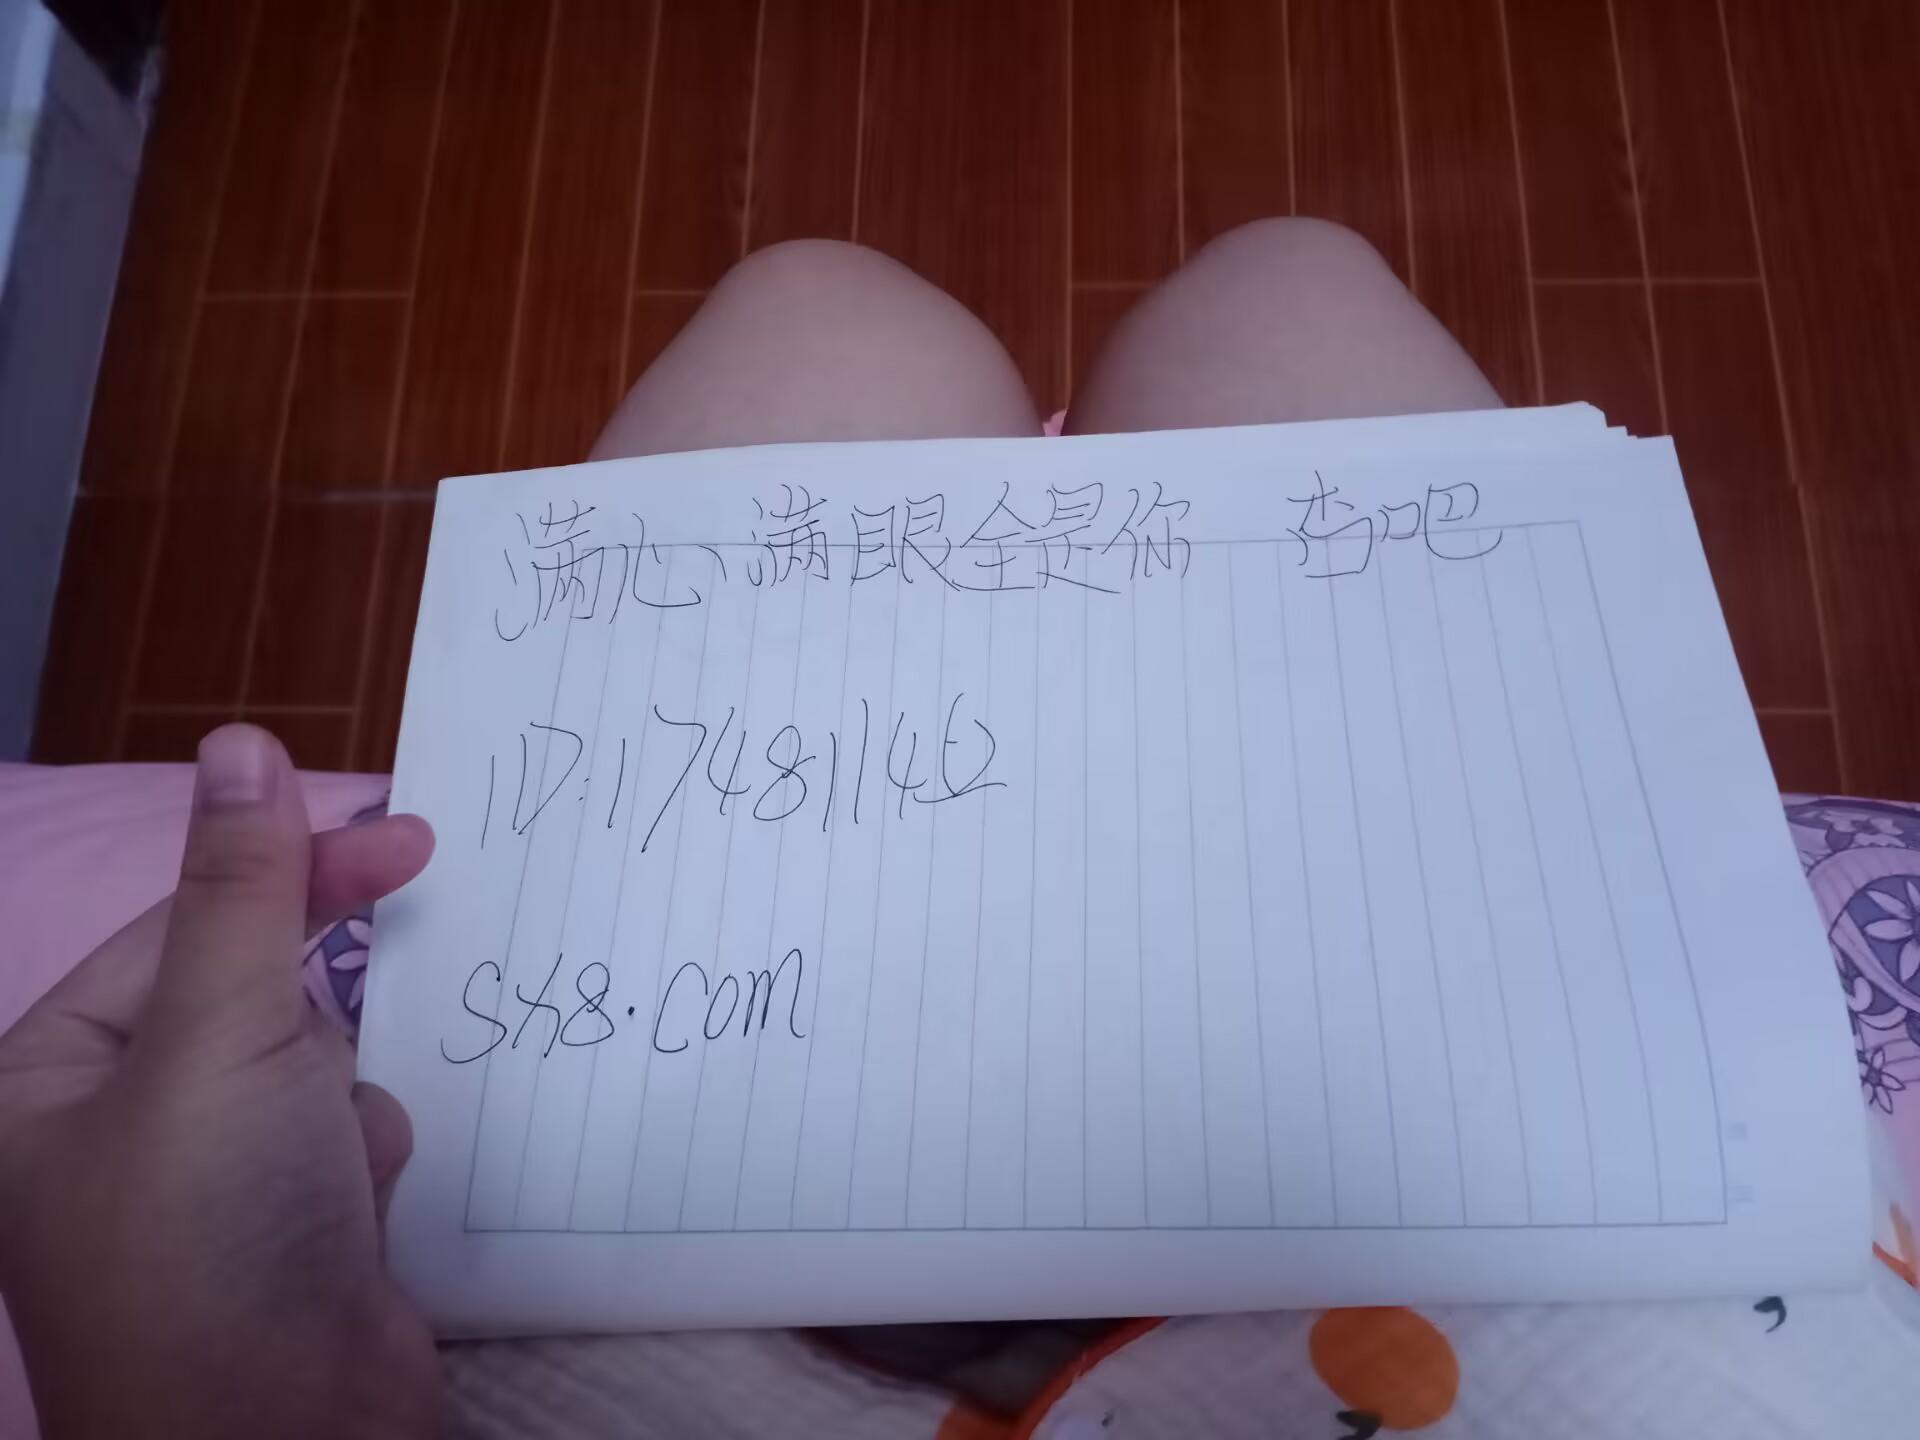 满心满眼全是你 杏吧
ID:17481142
sx8.com